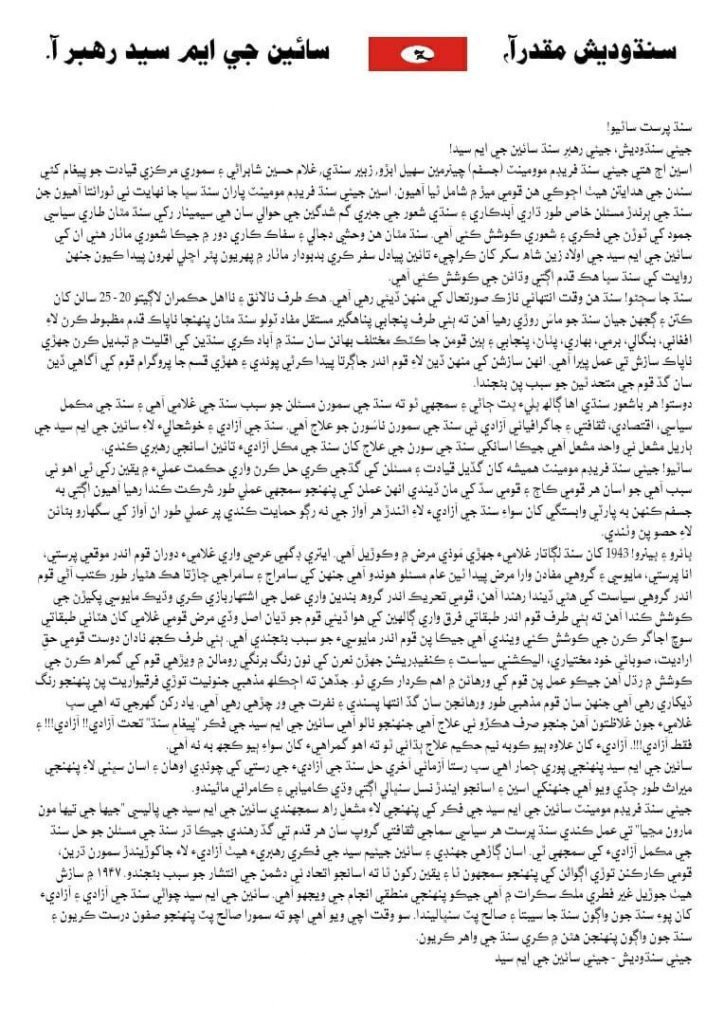 سنڌوديش مقدر آ، سائين جي ايم سيد رهبر آ.
سنڌ پرست ساٿيو!
جيئي سنڌوديش، جيئي رهبر سنڌ سائين جي ايم سيد!
اسين اڄ هتي جيئي سنڌ فريڊم موومينٽ (جسفم) چيئرمين سهيل ابڙو، زبير سنڌي، غلام حسين شاهراڻي ۽ سموري مرڪزي قيادت جو پيغام کڻي
سندن جي هدايتن هيٺ اڄوڪي هن قومي ميڙ ۾ شامل ٿيا آهيون. اسين جيئي سنڌ فريڊم موومينٽ پاران سنڌ سڀا جا نهايت ئي ٿورائتا آهيون جن
سنڌ جي ٻرندڙ مسئلن خاص طور ڌاري آبدڪاري ۽ سنڌي شعور جي جبري گم شدگين جي حوالي سان هي سيمينار رکي سنڌ مٿان طاري سياسي
جمود کي ٽوڙڻ جي فڪري ۽ شعوري ڪوشش ڪئي آهي. سنڌ مٿان هن وحشي دجالي ۽ سفاڪ ڪاري دور ۾ جيڪا شعوري ماٺار هئي ان کي
سائين جي ايم سيد جي اولاد زين شاهه سکر کان ڪراچيءَ تائين پيادل سفر ڪري بدبودار ماٺار ۾ پهريون پٿر اڇلي لهرون پيدا ڪيون جنهن
روايت کي سنڌ سڀا هڪ قدم اڳتي وڌائڻ جي ڪوشش ڪئي آهي.
سنڌ جا سڄڻو! سنڌ هن وقت انتهائي نازڪ صورتحال کي منهن ڏيئي رهي آهي. هڪ طرف نالائق ۽ نااهل حڪمران لاڳيتو 20 - 25 سالن کان
ڪتن ۽ ڳجهن جيان سنڌ جو ماس روڙي رهيا آهن ته ٻئي طرف پنجابي پناهگير مستقل مفاد ٽولو سنڌ مٿان پنهنجا ناپاڪ قدم مظبوط ڪرڻ لاءِ
افغاني، بنگالي، برمي، بهاري، پٺاڻ، پنجابي ۽ ٻين قومن جا ڪٽڪ مختلف بهانن سان سنڌ ۾ آباد ڪري سنڌين کي اقليت ۾ تبديل ڪرڻ جهڙي
ناپاڪ سازش تي عمل پيرا آهي. انهن سازشن کي منهن ڏيڻ لاءِ قوم اندر جاڳرتا پيدا ڪرڻي پوندي ۽ ههڙي قسم جا پروگرام قوم کي آگاهي ڏيڻ
سان گڏ قوم جي متحد ٿيڻ جو سبب پڻ بڻجندا.
دوستو! هر باشعور سنڌي اها ڳالهه ڀليءَ ڀت ڄاڻي ۽ سمجهي ٿو ته سنڌ جي سمورن مسئلن جو سبب سنڌ جي غلامي آهي ۽ سنڌ جي مڪمل
سياسي، اقتصادي، ثقافتي ۽ جاگرافيائي آزادي ئي سنڌ جي سمورن ناسُورن جو علاج آهي. سنڌ جي آزادي ۽ خوشحاليءَ لاءِ سائين جي ايم سيد جي
ٻاريل مشعل ئي واحد مشعل آهي جيڪا اسانکي سنڌ جي سورن جي علاج کان سنڌ جي مڪل آزاديءَ تائين اسانجي رهبري ڪندي.
ساٿيو! جيئي سنڌ فريڊم موومينٽ هميشه کان گڏيل قيادت ۽ مسئلن کي گڏجي ڪري حل ڪرڻ واري حڪمت عمليءَ ۾ يقين رکي ٿي اهو ئي
سبب آهي جو اسان هر قومي ڪاڄ ۽ قومي سڏ کي مان ڏيندي انهن عملن کي پنهنجو سمجهي عملي طور شرڪت ڪندا رهيا آهيون اڳتي به
جسفم ڪنهن به پارٽي وابستگي کان سواءِ سنڌ جي آزاديءَ لاءِ اٿندڙ هر آواز جي نه رڳو حمايت ڪندي پر عملي طور ان آواز کي سگهارو بڻائڻ
لاءِ حصو پڻ وٺندي.
ٻانرو ۽ ڀينرو! 1943 کان سنڌ لڳاتار غلاميءَ جهڙي مُوذي مرض ۾ وڪوڙيل آهي. ايتري ڊگهي عرصي واري غلاميءَ دوران قوم اندر موقعي پرستي،
انا پرستي، مايوسي ۽ گروهي مفادن وارا مرض پيدا ٿيڻ عام مسئلو هوندو آهي جنهن کي سامراج ۽ سامراجي چاڙتا هڪ هٿيار طور ڪتب آڻي قوم
اندر گروهي سياست کي هٿي ڏيندا رهندا آهن، قومي تحريڪ اندر گروهه بندين واري عمل جي اشتهاربازي ڪري وڌيڪ مايوسي پکيڙڻ جي
ڪوشش ڪندا آهن ته ٻئي طرف قوم اندر طبقاتي فرق واري ڳالهين کي هوا ڏيئي قوم جو ڌيان اصل وڏي مرض قومي غلامي کان هٽائي طبقاتي
سوچ اجاگر ڪرڻ جي ڪوشش ڪئي ويندي آهي جيڪا پڻ قوم اندر مايوسيءَ جو سبب بڻجندي آهي. ٻئي طرف ڪجهه نادان دوست قومي حقِ
اراديت، صوبائي خود مختياري، اليڪشني سياست ۽ ڪنفيڊريشن جهڙن نعرن کي نون رنگ برنگي رومالن ۾ ويڙهي قوم کي گمراهه ڪرڻ جي
ڪوشش ۾ رڌل آهن جيڪو عمل پڻ قوم کي ورهائڻ ۾ اهم ڪردار ڪري ٿو. جڏهن ته اڄڪلهه مذهبي جنونيت توڙي فرقيواريت پڻ پنهنجو رنگ
ڏيکاري رهي آهي جنهن سان قوم مذهبي طور ورهائجڻ سان گڏ انتها پسندي ۽ نفرت جي ور چڙهي رهي آهي. ياد رکڻ گهرجي ته اهي سب
غلاميءَ جون غلاظتون آهن جنجو صرف هڪڙو ئي علاج آهي جنهنجو نالو آهي سائين جي ايم سيد جي فڪر "پيغامِ سنڌ" تحت آزادي!! آزادي!!! ۽
فقط آزادي!!!. آزاديءَ کان علاوه ٻيو ڪوبه نيم حڪيم علاج ٻڌائي ٿو ته اهو گمراهيءَ کان سواءِ ٻيو ڪجهه به نه آهي.
سائين جي ايم سيد پنهنجي پوري ڄمار اهي سڀ رستا آزمائي آخري حل سنڌ جي آزاديءَ جي رستي کي چونڊي اوهان ۽ اسان سڀني لاءِ پنهنجي
ميراث طور ڇڏي ويو آهي جنهنکي اسين ۽ اسانجو ايندڙ نسل سنڀالي اڳتي وڌي ڪاميابي ۽ ڪامراني ماڻيندو.
جيئي سنڌ فريڊم موومينٽ سائين جي ايم سيد جي فڪر کي پنهنجي لاءِ مشعلِ راهه سمجهندي سائين جي ايم سيد جي پاليسي "جيها جي تيها مون
مارون مڃيا" تي عمل ڪندي سنڌ پرست هر سياسي سماجي ثقافتي گروپ سان هر قدم تي گڏ رهندي جيڪا ڌر سنڌ جي مسئلن جو حل سنڌ
جي مڪمل آزادي کي سمجهي ٿي. اسان ڳاڙهي جهنڊي ۽ سائين جيئيم سيد جي فڪري رهبريءَ هيٺ آزاديءَ لاءِ جاکوڙيندڙ سمورن ڌرين،
قومي ڪارڪنن توڙي اڳواڻن کي پنهنجو سمجهون ٿا ۽ يقين رکون ٿا ته اسانجو اتحاد ئي دشمن جي انتشار جو سبب بڻجندو. ۱۹۴۷ ۾ سازش
هيٺ جوڙيل غير فطري ملڪ سڪرات ۾ آهي جيڪو پنهنجي منطقي انجام جي ويجهو آهي. سائين جي ايم سيد چواڻي سنڌ جي آزادي ۽ آزاديءَ
کان پوءِ سنڌ جون واڳون سنڌ جا سپيتا ۽ صالح پٽ سنڀاليندا. سو وقت اچي ويو آهي اچو ته سمورا صالح پٽ پنهنجو صفون درست ڪريون ۽
سنڌ جون واڳون پنهنجن هٿن ۾ ڪري سنڌ جي واهر ڪريون.
جيئي سنڌوديش - جيئي سائين جي ايم سيد